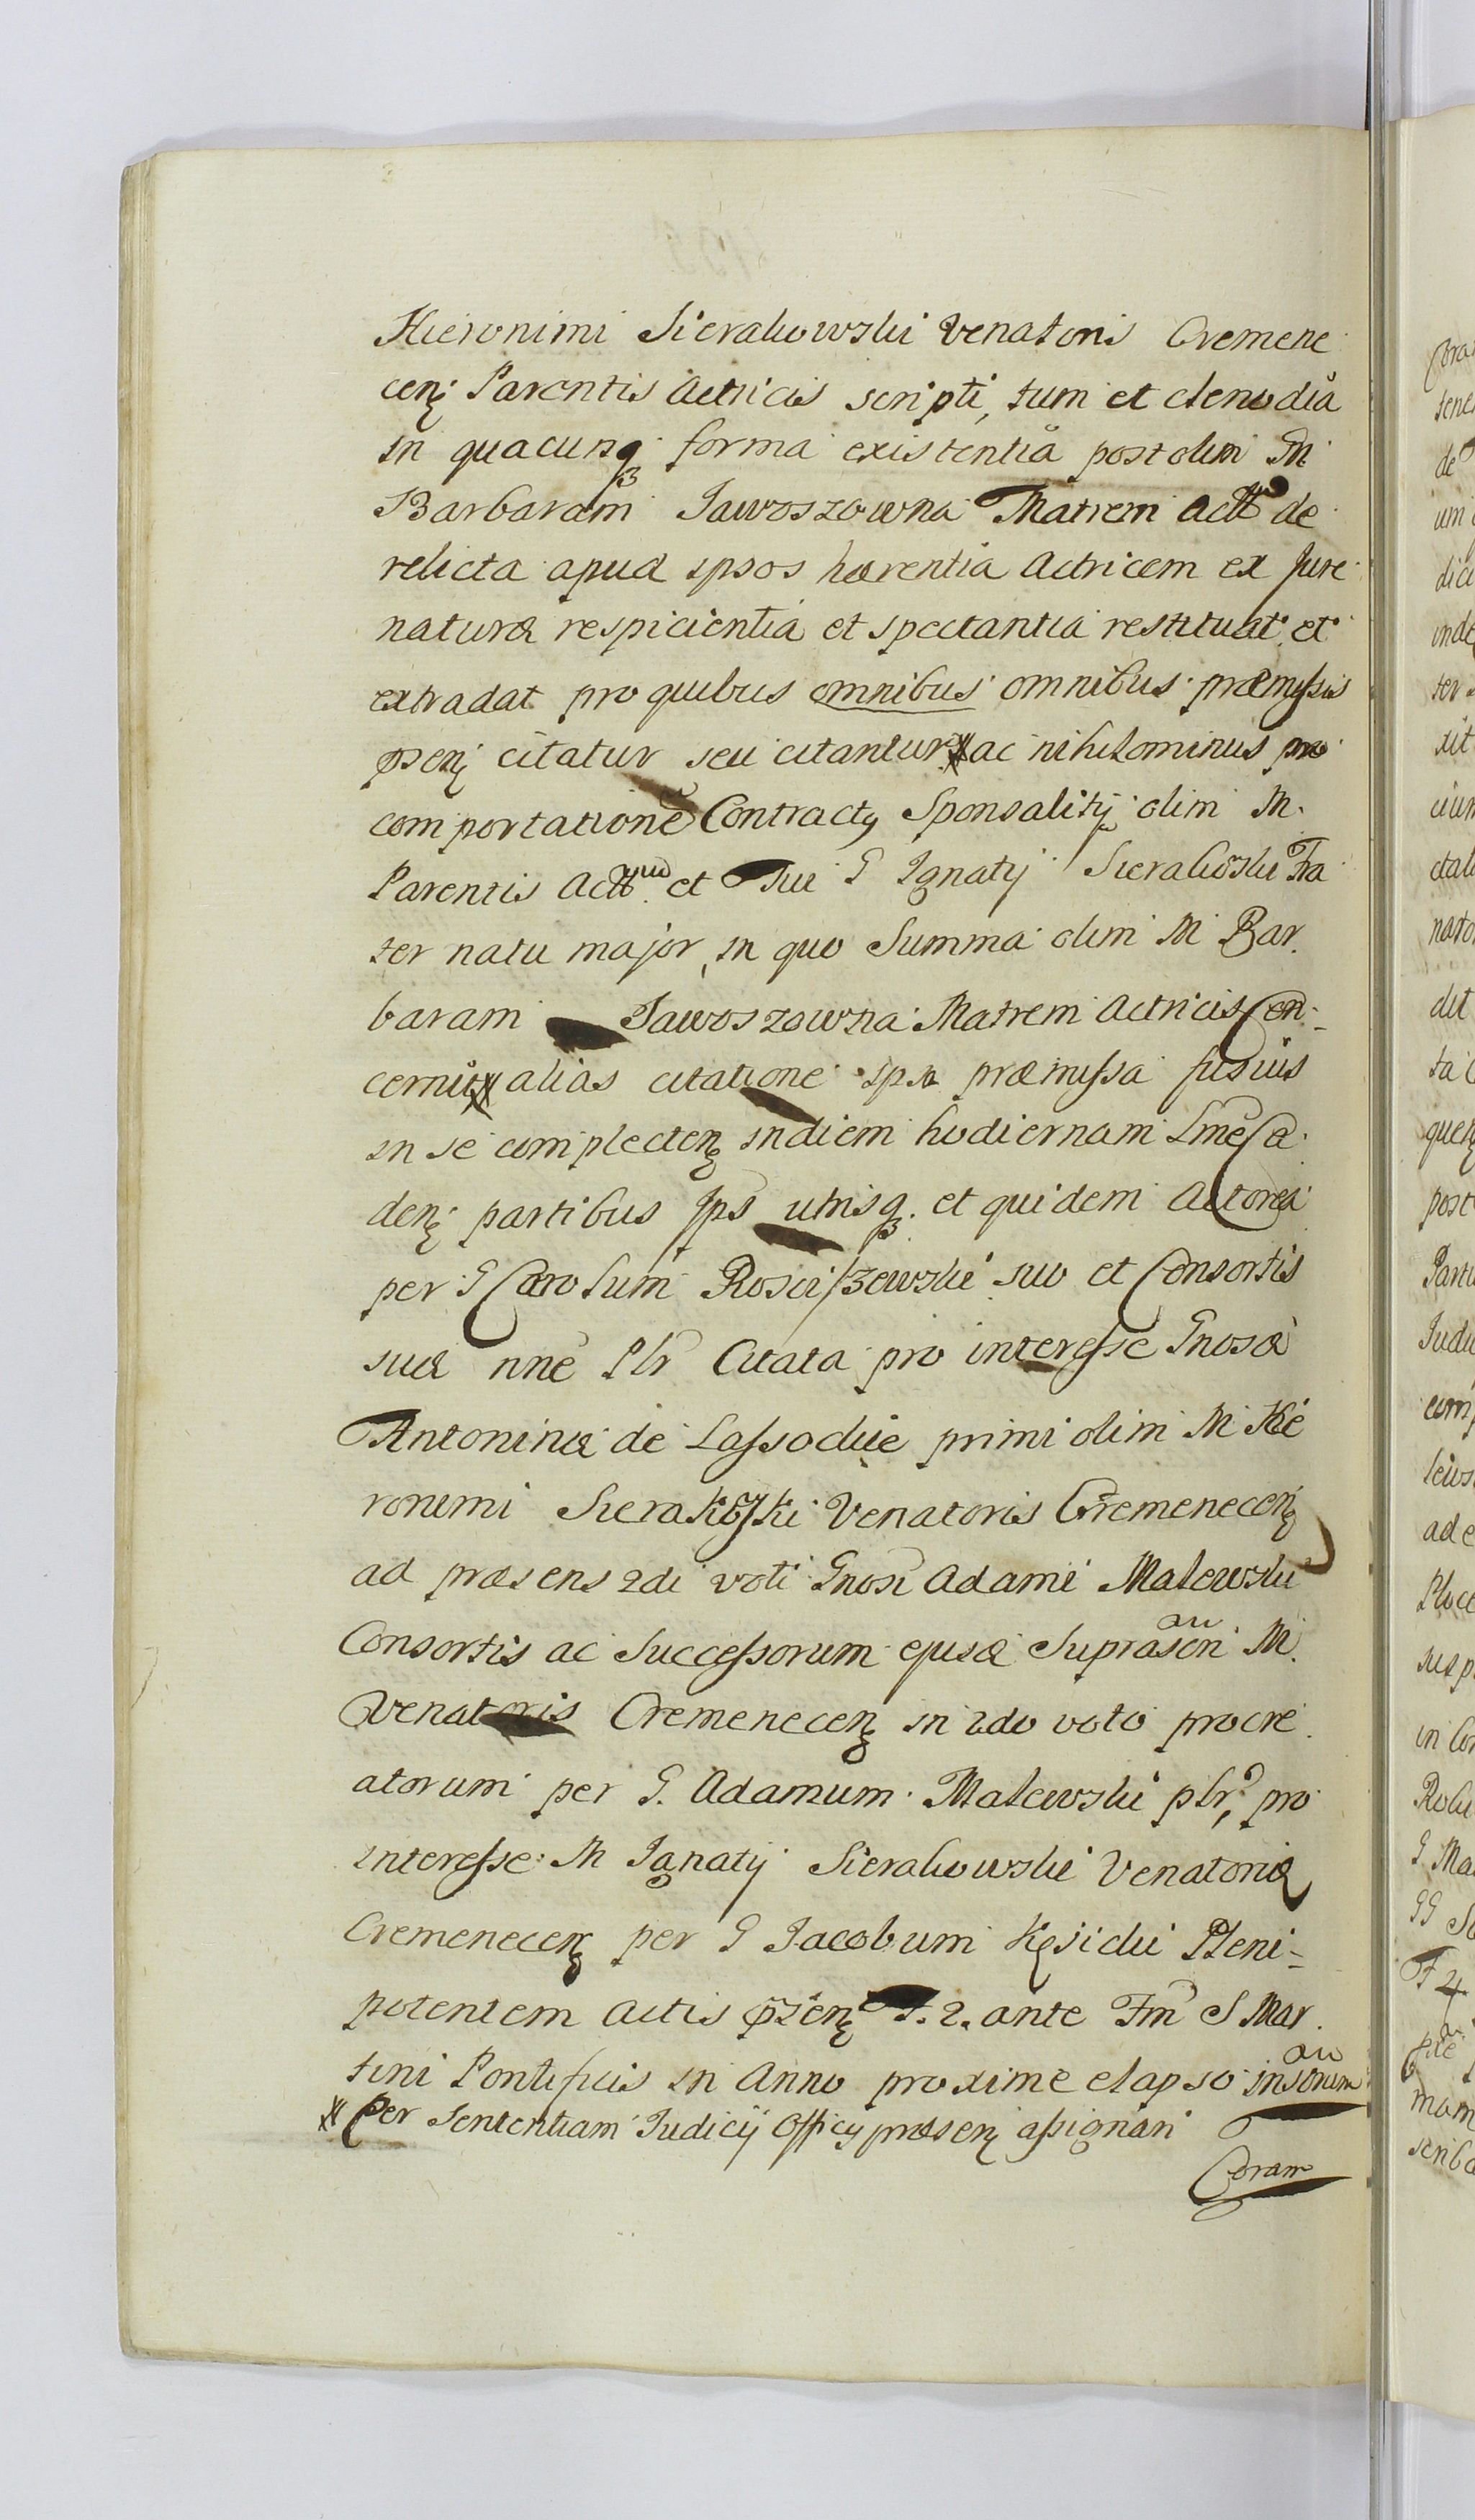 Hieronimi Sierakowski Venatoris Cremene
cen: Parentis Actricis scripti, tum et clenodia
in quacunq forma existentia post olim M
Barbaram Jawoszowna Matrem Act de
relicta apud ipsos hærentia Actricem ex Jure
naturæ respicientia et spectantia restituat et
extradat pro quibus omnibus omnibus præmissis
citatur seu citantur ac nihilominus pro
comportatione Contractus Sponsalitij olim M.
Parentis et Sui G Ignatij Sierakoski Fra
ter natu major, in quo Summa olim M Bar.
baram Jawoszowna Matrem Actricis Con-
cernit alias citatione ipsa præmissa fusius
in se complecten in diem hodiernam Lme Ca
den: partibus Ips utrisq. et quidem Actorea
per G Carolum Rosciszewski suo et Consortis
suæ nne Plr Citata pro interesse Gnosæ
Antoninæ de Lassockie primi olim M Hie
ronimi Sierakoski Venatoris Cremenecen
ad præsens 2di voti Gnosi Adami Malewski
Consortis ac Successorum ejusd Suprascri M.
Venatoris Cremenecen in 2do voto procre
atorum per G. Adamum Malewski plr, pro
interesse M Ignatij Sierakowski Venatoris
Cremenecen per G Jacobum Kęsicki Pleni-
potentem Actis F. 2. ante Fm S Mar.
tini Pontificis in Anno proxime elapso
Per Sententiam Judicij Officij præsen assignari
Coram